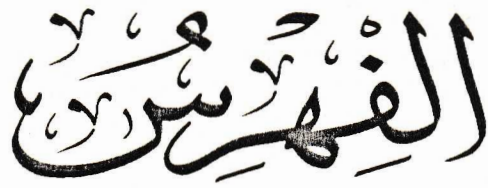 الفِهْرِسُ